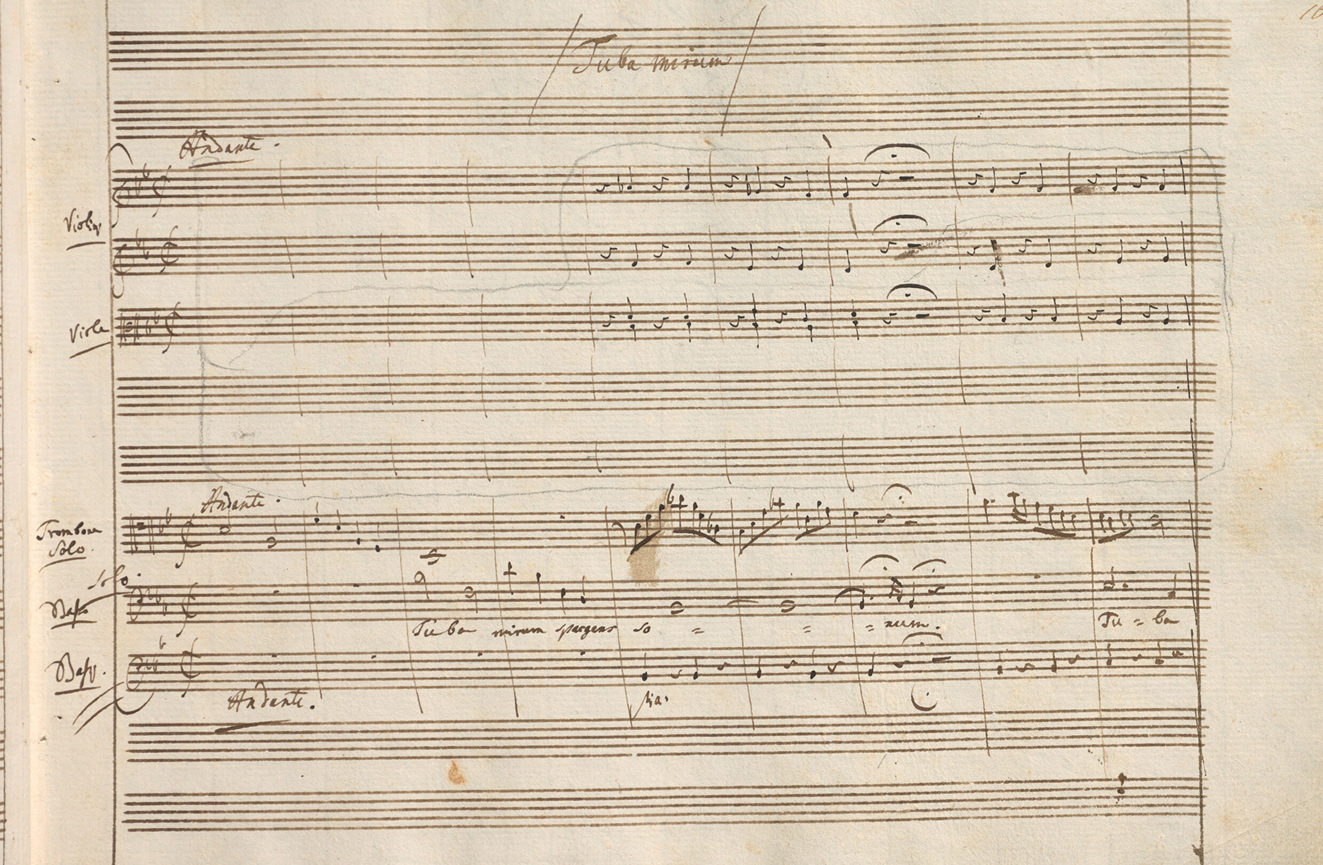 Tuba mirum
Andante.
Violin
Viola
Andante.
Trombone
Solo.
Solo.
Tuba mirum spargens so = = = num. Tu = ba
Andante.